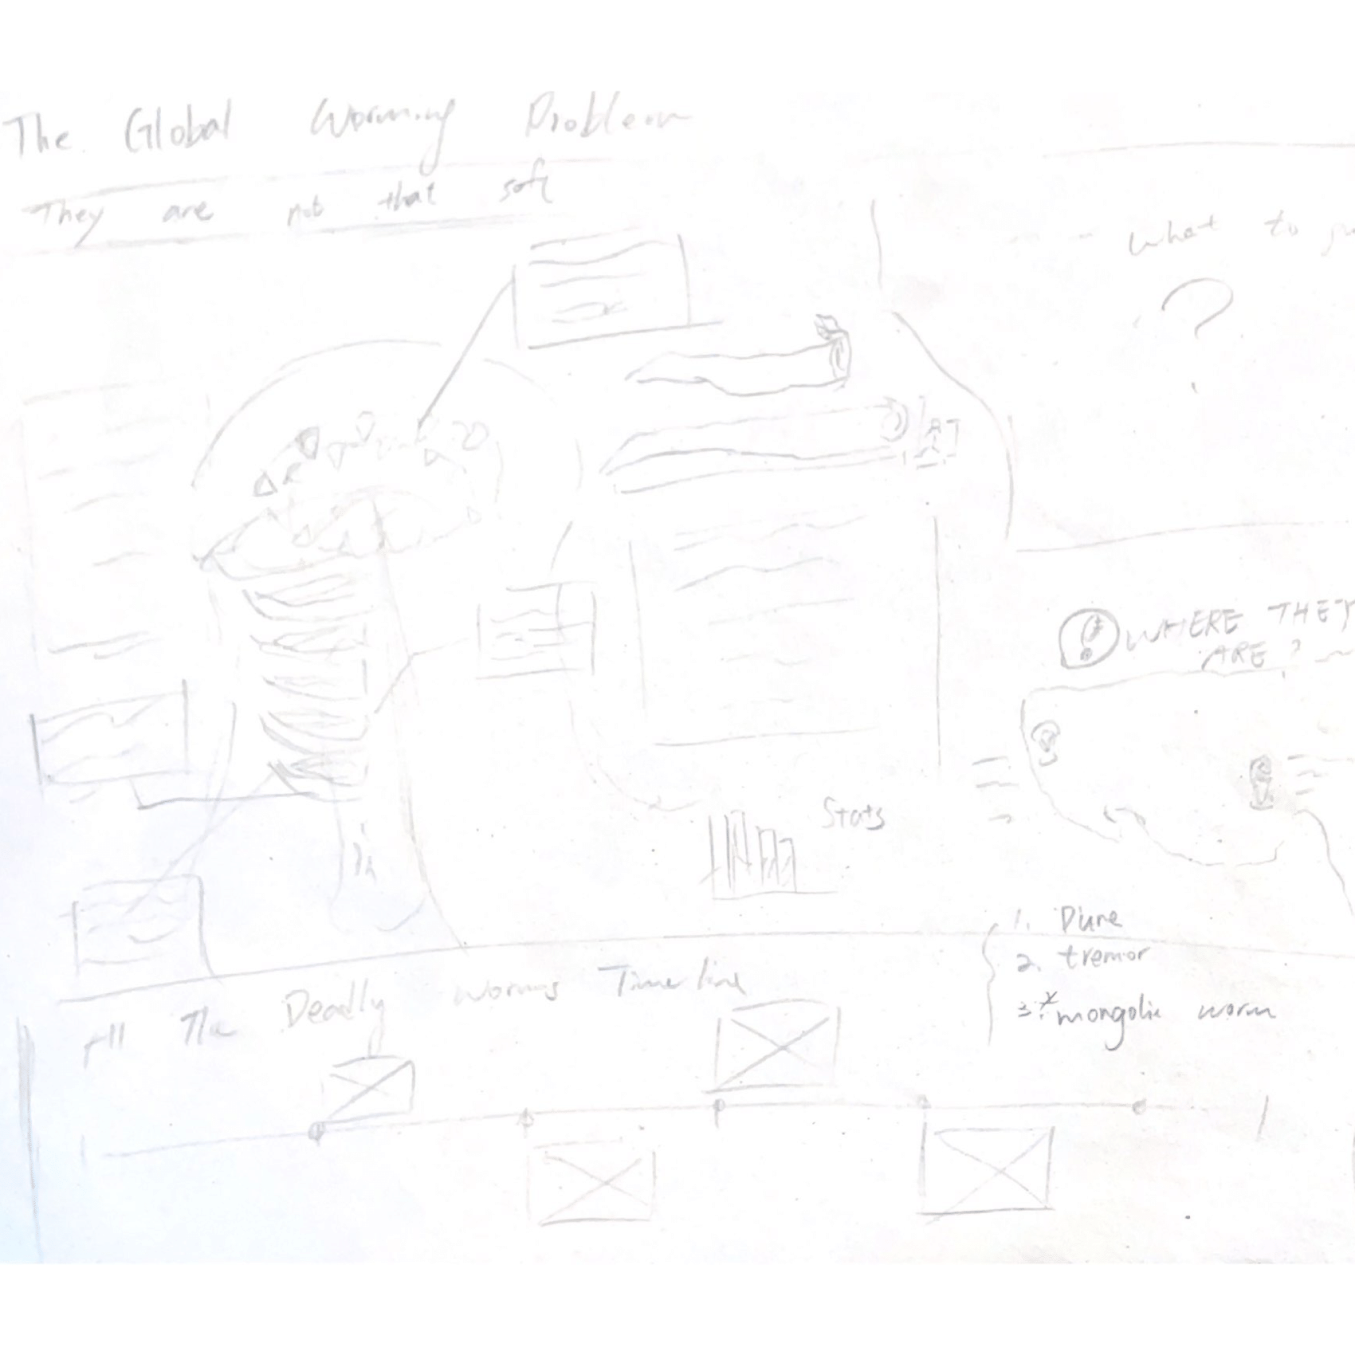 The Global Worming Problem
They are not that soft
what to
WHERE THEY
ARE?
Stats
1. Dune
2. tremor
3.* mongolic worm
All The Deadly worms Timeline